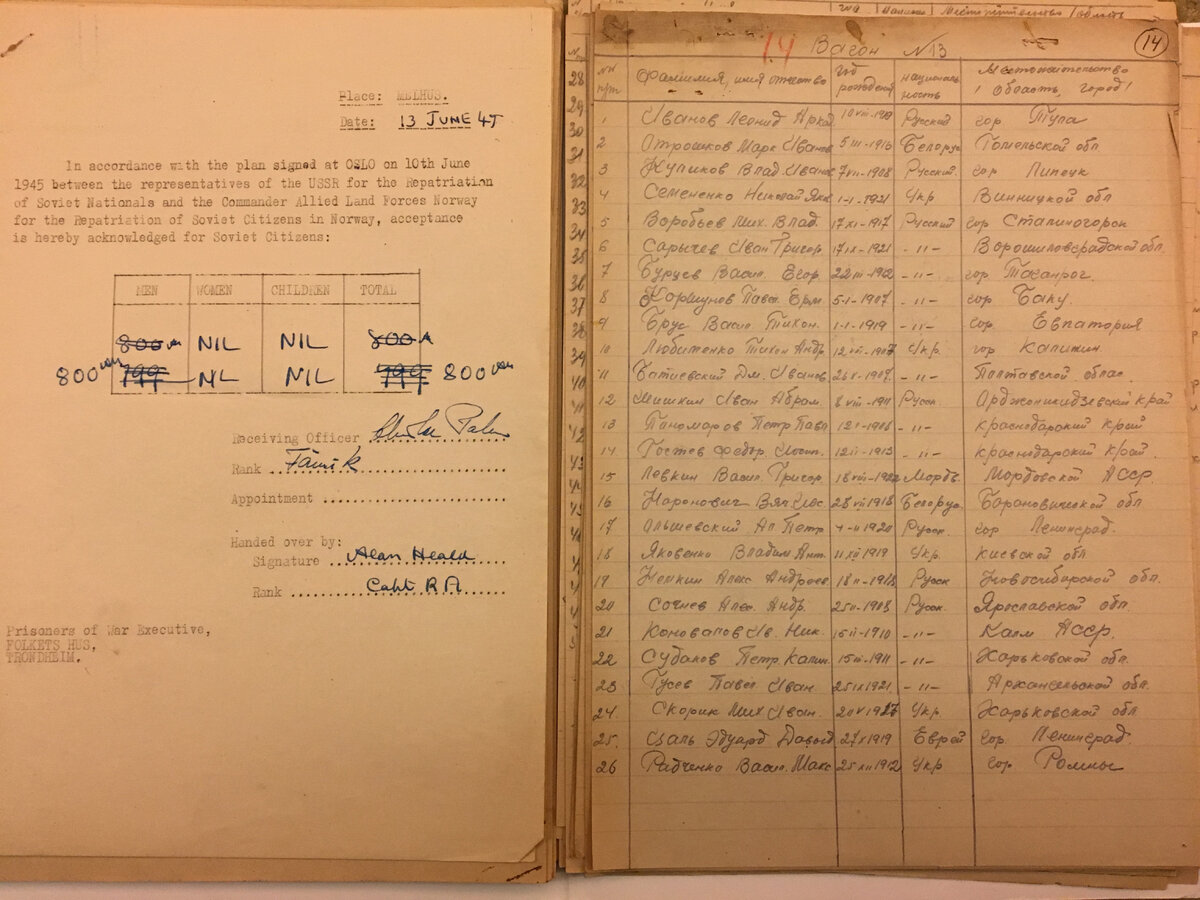 Place: MELHUS.
Date: 13 JUNE 45
In accordance with the plan signed at OSLO on 10th June
1945 between the representatives of the USSR for the Repatriation
of Soviet Nationals and the Commander Allied Land Forces Norway
for the Repatriation of Soviet Citizens in Norway, acceptance
is hereby acknowledged for Soviet Citizens:
MEN WOMEN CHILDREN TOTAL
800 NIL NIL 800
800 799 NIL NIL 799 800
Receiving Officer
Rank
Appointment
Handed over by:
Signature Alan Heald
Rank Capt RA
Prisoners of War Executive,
FOLKETS HUS,
TRONDHEIM.
14 Вагон №13 14
№№ п/т Фамилия, имя отчество год рождения национальность Местожительство (область, город)
1 Иванов Леонид Аркад Русский гор Тула
2 Отрошков Марк Иванов 5 III-1916 Белорус Гомельской обл
3 Куликов Влад. Иванов 7 VII-1908 Русский гор Липецк
4 Семененко Николай Яков 1-I-1921 Укр Винницкой обл
5 Воробьев Мих. Влад. 17 XI-1917 Русский гор Сталиногорск
6 Сарычев Иван Григор. 17 IX-1921 -"- Ворошиловградской обл.
7 Бурцев Васил. Егор. 22 III-1912 -"- гор. Таганрог.
8 Коршунов Павел Ерм 5-I-1907 -"- гор. Баку.
9 Брус Васил. Тихон. 1-I-1919 -"- гор. Евпатория
10 Любитенко Тихон Андр. Укр. гор Калинин
11 Дм. Иванов -"- Полтавской облас.
12 Мишкин Иван Абрам. 8 VIII-1911 Русск. Орджоникидзевский край
13 Пономаров Петр Павл 12 I-1906 -"- Краснодарский край
14 Гостев Федор Иосип. 12 II-1913 -"- Краснодарский край.
15 Левкин Васил. Григор. Мордв. Мордовской АССР.
16 Вяч Иос. 28 VII 1918 Белорус. Барановической обл
17 Ольшевский Ал Петр 1920 Русск. гор Ленинград.
18 Яковенко Владим Ант. 11 XII 1919 Укр. Киевской обл
19 Алекс Андреев. 18 II-1918 Русск Новосибирской обл.
20 Сочнев Алек. Андр. 1908 Русск. Ярославской обл.
21 Коновалов Ив. Ник. 15 II-1910 -"- Калм АССР.
22 Субанов Петр. Калин. 15 III-1911 -"- Харьковской обл.
23 Гусев Павел Иван 25 IX 1921 -"- Архангельской обл.
24. Скорик Мих Иван. Укр. Харьковской обл
25. Эдуард Давыд 27 X 1919 Еврей гор. Ленинград.
26 Радченко Васил. Макс 25 XII 1912 Укр гор Ромны
28
29
30
31
32
33
34
35
36
37
38
39
40
41
42
43